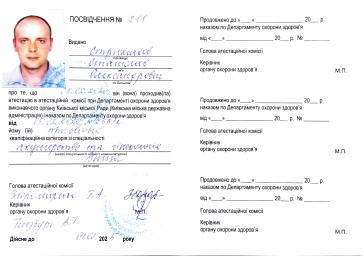 ПОСВІДЧЕННЯ № 211
Видано
Станіслав
про те, що він (вона) проходив(ла)
атестацію в атестаційній комісії при Департаменті охорони здоров'я
виконавчого органу Київської міської Ради (Київська міська державна
адміністрація) і наказом по Департаменту охорони здоров'я
від
йому (їй)
кваліфікаційна категорія зі спеціальності
акушерство та гінекологія
Голова атестаційної комісії
Т.А.
Керівник
М.П.
органу охорони здоров'я
Дійсне до 202 року
Продовжено до «___» ________ 20___ р.
наказом по Департаменту охорони здоров'я
від «___» ________ 20___ р. № ______
Голова атестаційної комісії
Керівник
органу охорони здоров'я М.П.
Продовжено до «___» ________ 20___ р.
наказом по Департаменту охорони здоров'я
від «___» ________ 20___ р. № ______
Голова атестаційної комісії
Керівник
органу охорони здоров'я М.П.
Продовжено до «___» ________ 20___ р.
наказом по Департаменту охорони здоров'я
від «___» ________ 20___ р. № ______
Голова атестаційної комісії
Керівник
органу охорони здоров'я М.П.